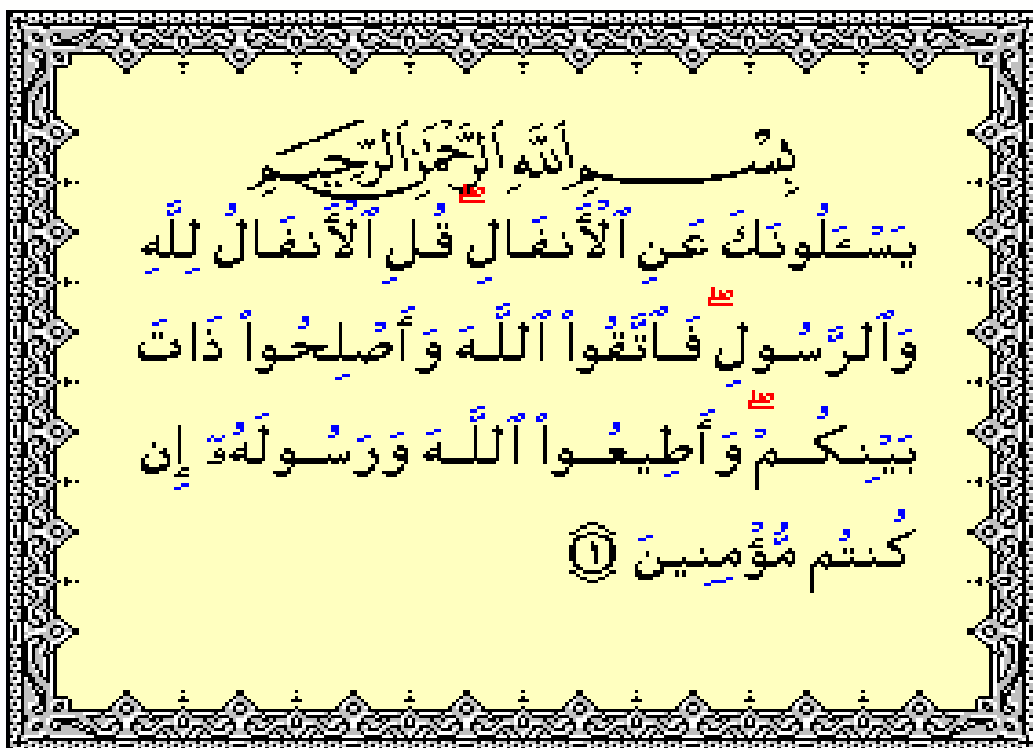 بِسْمِ اللَّهِ الرَّحْمَٰنِ الرَّحِيمِ
يَسْـَٔلُونَكَ عَنِ ٱلْأَنفَالِ ۖ قُلِ ٱلْأَنفَالُ لِلَّهِ
وَٱلرَّسُولِ ۖ فَٱتَّقُوا۟ ٱللَّهَ وَأَصْلِحُوا۟ ذَاتَ
بَيْنِكُمْ ۖ وَأَطِيعُوا۟ ٱللَّهَ وَرَسُولَهُۥٓ إِن
كُنتُم مُّؤْمِنِينَ ١